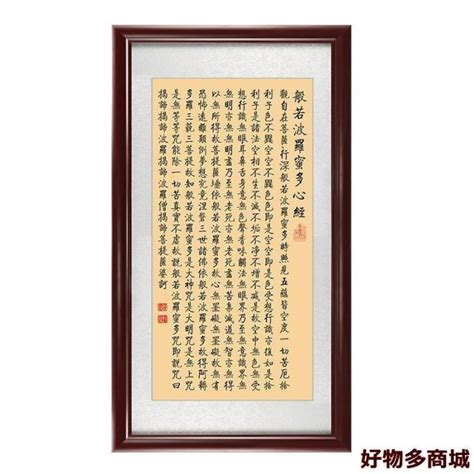 般若波羅蜜多心經
觀自在菩薩行深般若波羅蜜多時照見五蘊皆空度一切苦厄舍
利子色不異空空不異色色即是空空即是色受想行識亦復如是舍
利子是諸法空相不生不滅不垢不淨不增不減是故空中無色無受
想行識無眼耳鼻舌身意無色聲香味觸法無眼界乃至無意識界無
無明亦無無明盡乃至無老死亦無老死盡無苦集滅道無智亦無得
以無所得故菩提薩埵依般若波羅蜜多故心無罣礙無罣礙故無有
恐怖遠離顛倒夢想究竟涅槃三世諸佛依般若波羅蜜多故得阿耨
多羅三藐三菩提故知般若波羅蜜多是大神咒是大明咒是無上咒
是無等等咒能除一切苦真實不虛故說般若波羅蜜多咒即說咒曰
揭諦揭諦波羅揭諦波羅僧揭諦菩提薩婆訶
好物多商城